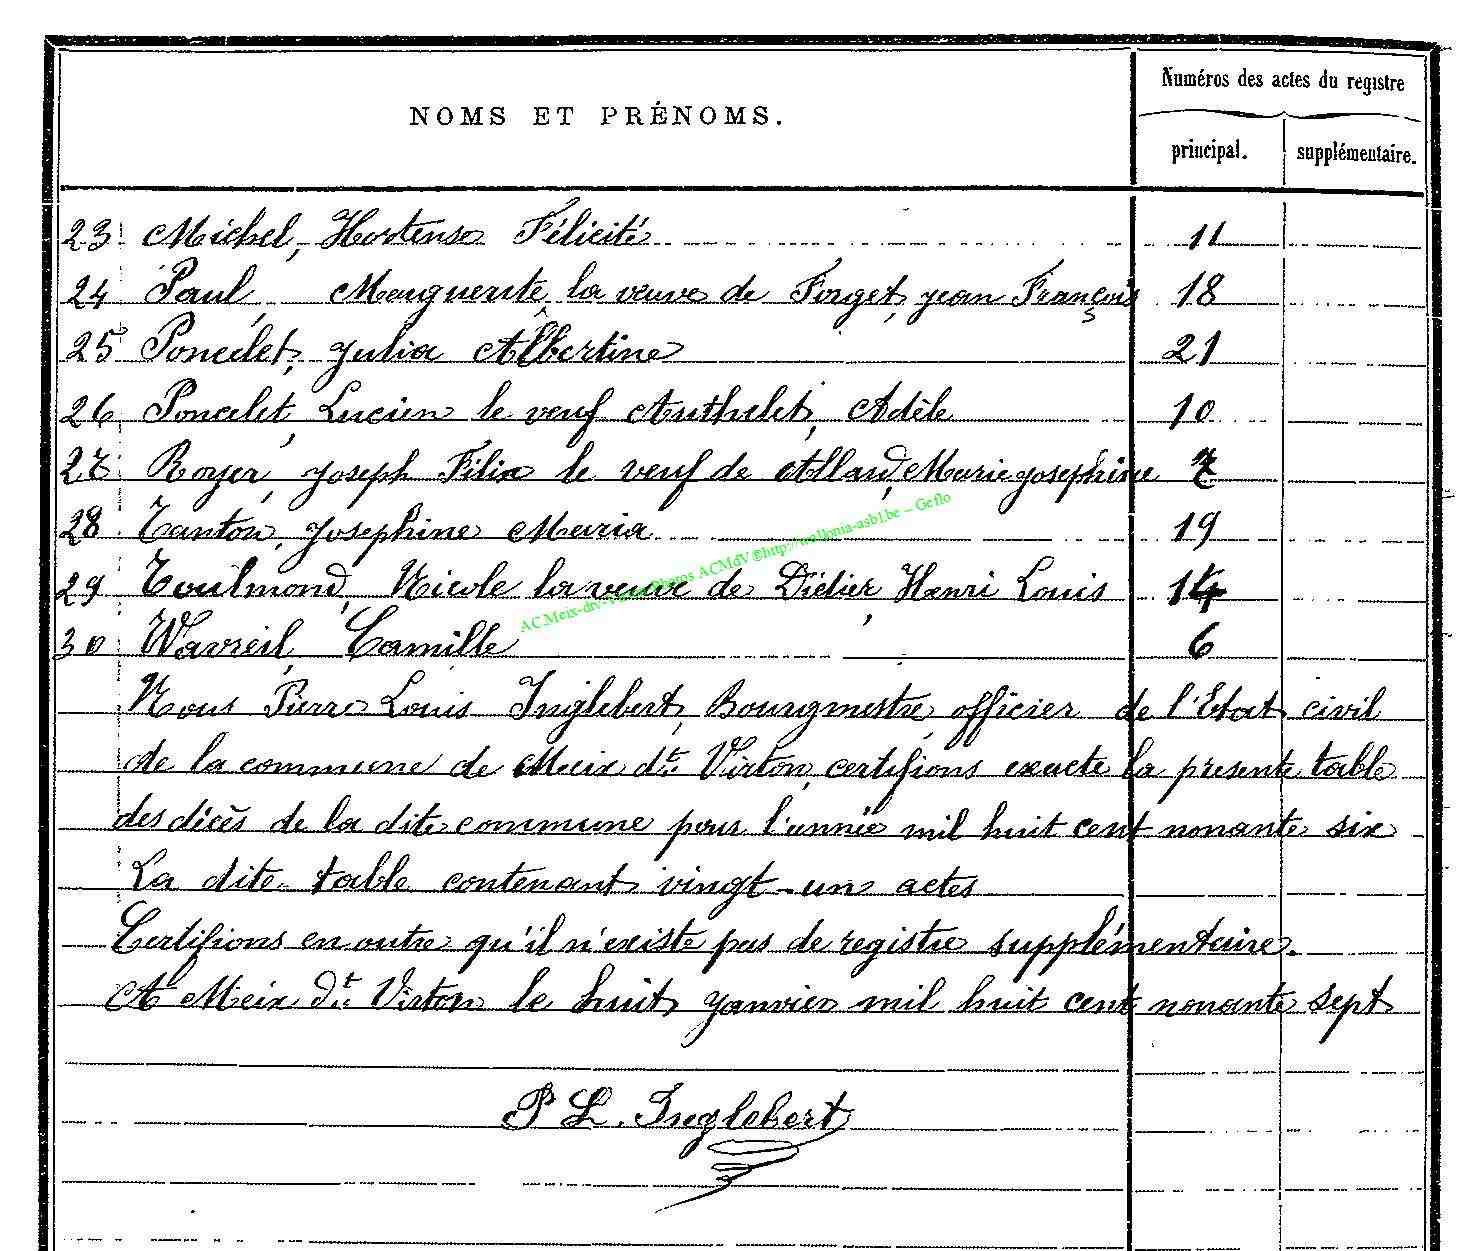 NOMS ET PRÉNOMS.
Numéros des actes du registre
principal. supplémentaire.
23 Michel, Hortense Félicité 11
24 Paul, Marguerite, la veuve de Forget, Jean François 18
25 Poncelet, Julia Albertine 21
26 Poncelet, Lucien le veuf Authelet, Adèle 10
27 Royer, Joseph Félix le veuf de Allard, Marie Josephine 7
28 Tanton, Josephine Maria 19
29 Toulmond, Nicole la veuve de Didier, Henri Louis 14
30 Wavreil, Camille 6
Nous Pierre Louis Inglebert, Bourgmestre, officier de l'Etat civil
de la commune de Meix dt Virton, certifions exacte la presente table
des décès de la dite commune pour l'année mil huit cent nonante six
La dite table contenant vingt-un actes
Certifions en outre qu'il n'existe pas de registre supplémentaire.
A Meix dt Virton le huit Janvier mil huit cent nonante sept
P L. Inglebert
ACMeix-dt-Virton Photos ACMdV©http://wallonia-asbl.be – Geflo